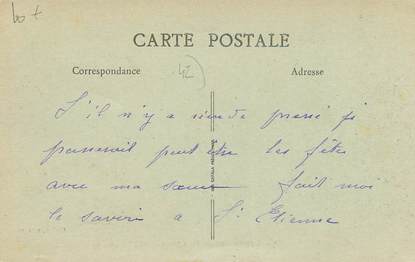 bo +
CARTE POSTALE
Correspondance
42
Adresse
S'il n'y a rien de pressé je
passerait peut être les fêtes
avec ma sœur fait moi
le savoir a St Etienne